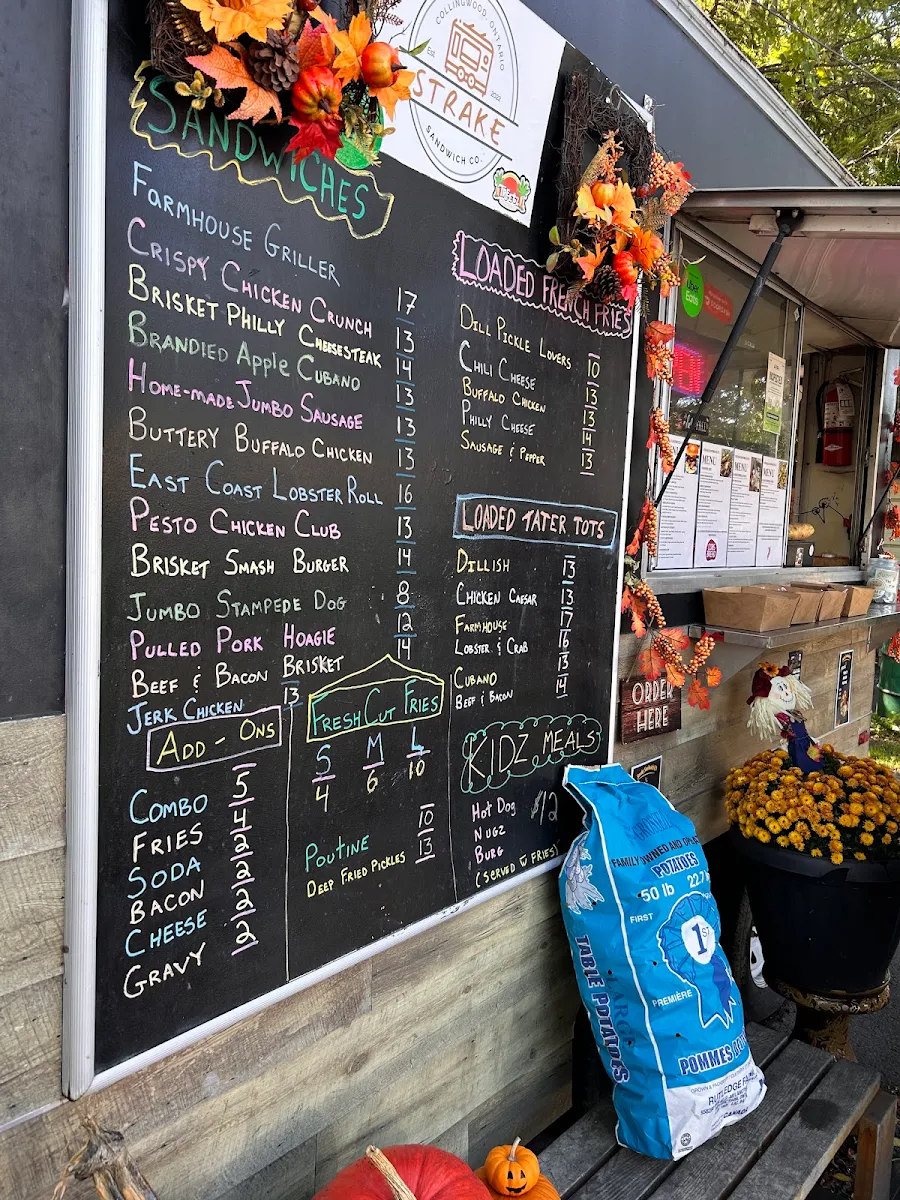 SANDWICHES
FARMHOUSE GRILLER 17
CRISPY CHICKEN CRUNCH 13
BRISKET PHILLY CHEESESTEAK 14
BRANDIED APPLE CUBANO 13
HOME-MADE JUMBO SAUSAGE 13
BUTTERY BUFFALO CHICKEN 13
EAST COAST LOBSTER ROLL 16
PESTO CHICKEN CLUB 13
BRISKET SMASH BURGER 14
JUMBO STAMPEDE DOG 8
PULLED PORK HOAGIE 12
BEEF & BACON BRISKET 14
JERK CHICKEN 13
ADD-ONS
COMBO 5
FRIES 4
SODA 2
BACON 2
CHEESE 2
GRAVY 2
FRESH CUT FRIES
S M L
4 6 10
POUTINE 10
DEEP FRIED PICKLES 13
COLLINGWOOD, ONTARIO
Est. 2022
STRAKE
SANDWICH CO.
LOADED FRENCH FRIES
DILL PICKLE LOVERS 10
CHILI CHEESE 13
BUFFALO CHICKEN 13
PHILLY CHEESE 14
SAUSAGE & PEPPER 13
LOADED TATER TOTS
DILLISH 13
CHICKEN CAESAR 13
FARMHOUSE 17
LOBSTER & CRAB 16
CUBANO 13
BEEF & BACON 14
KIDZ MEALS
HOT DOG $12
NUGZ
BURG
(SERVED W FRIES)
Uber Eats
MENU
MENU
MENU
MENU
ORDER
HERE
FAMILY OWNED AND
POTATOES
50 lb 22.7
FIRST
1ST
PREMIÈRE
TABLE POTATOES
LARGE
POMMES
CANADA